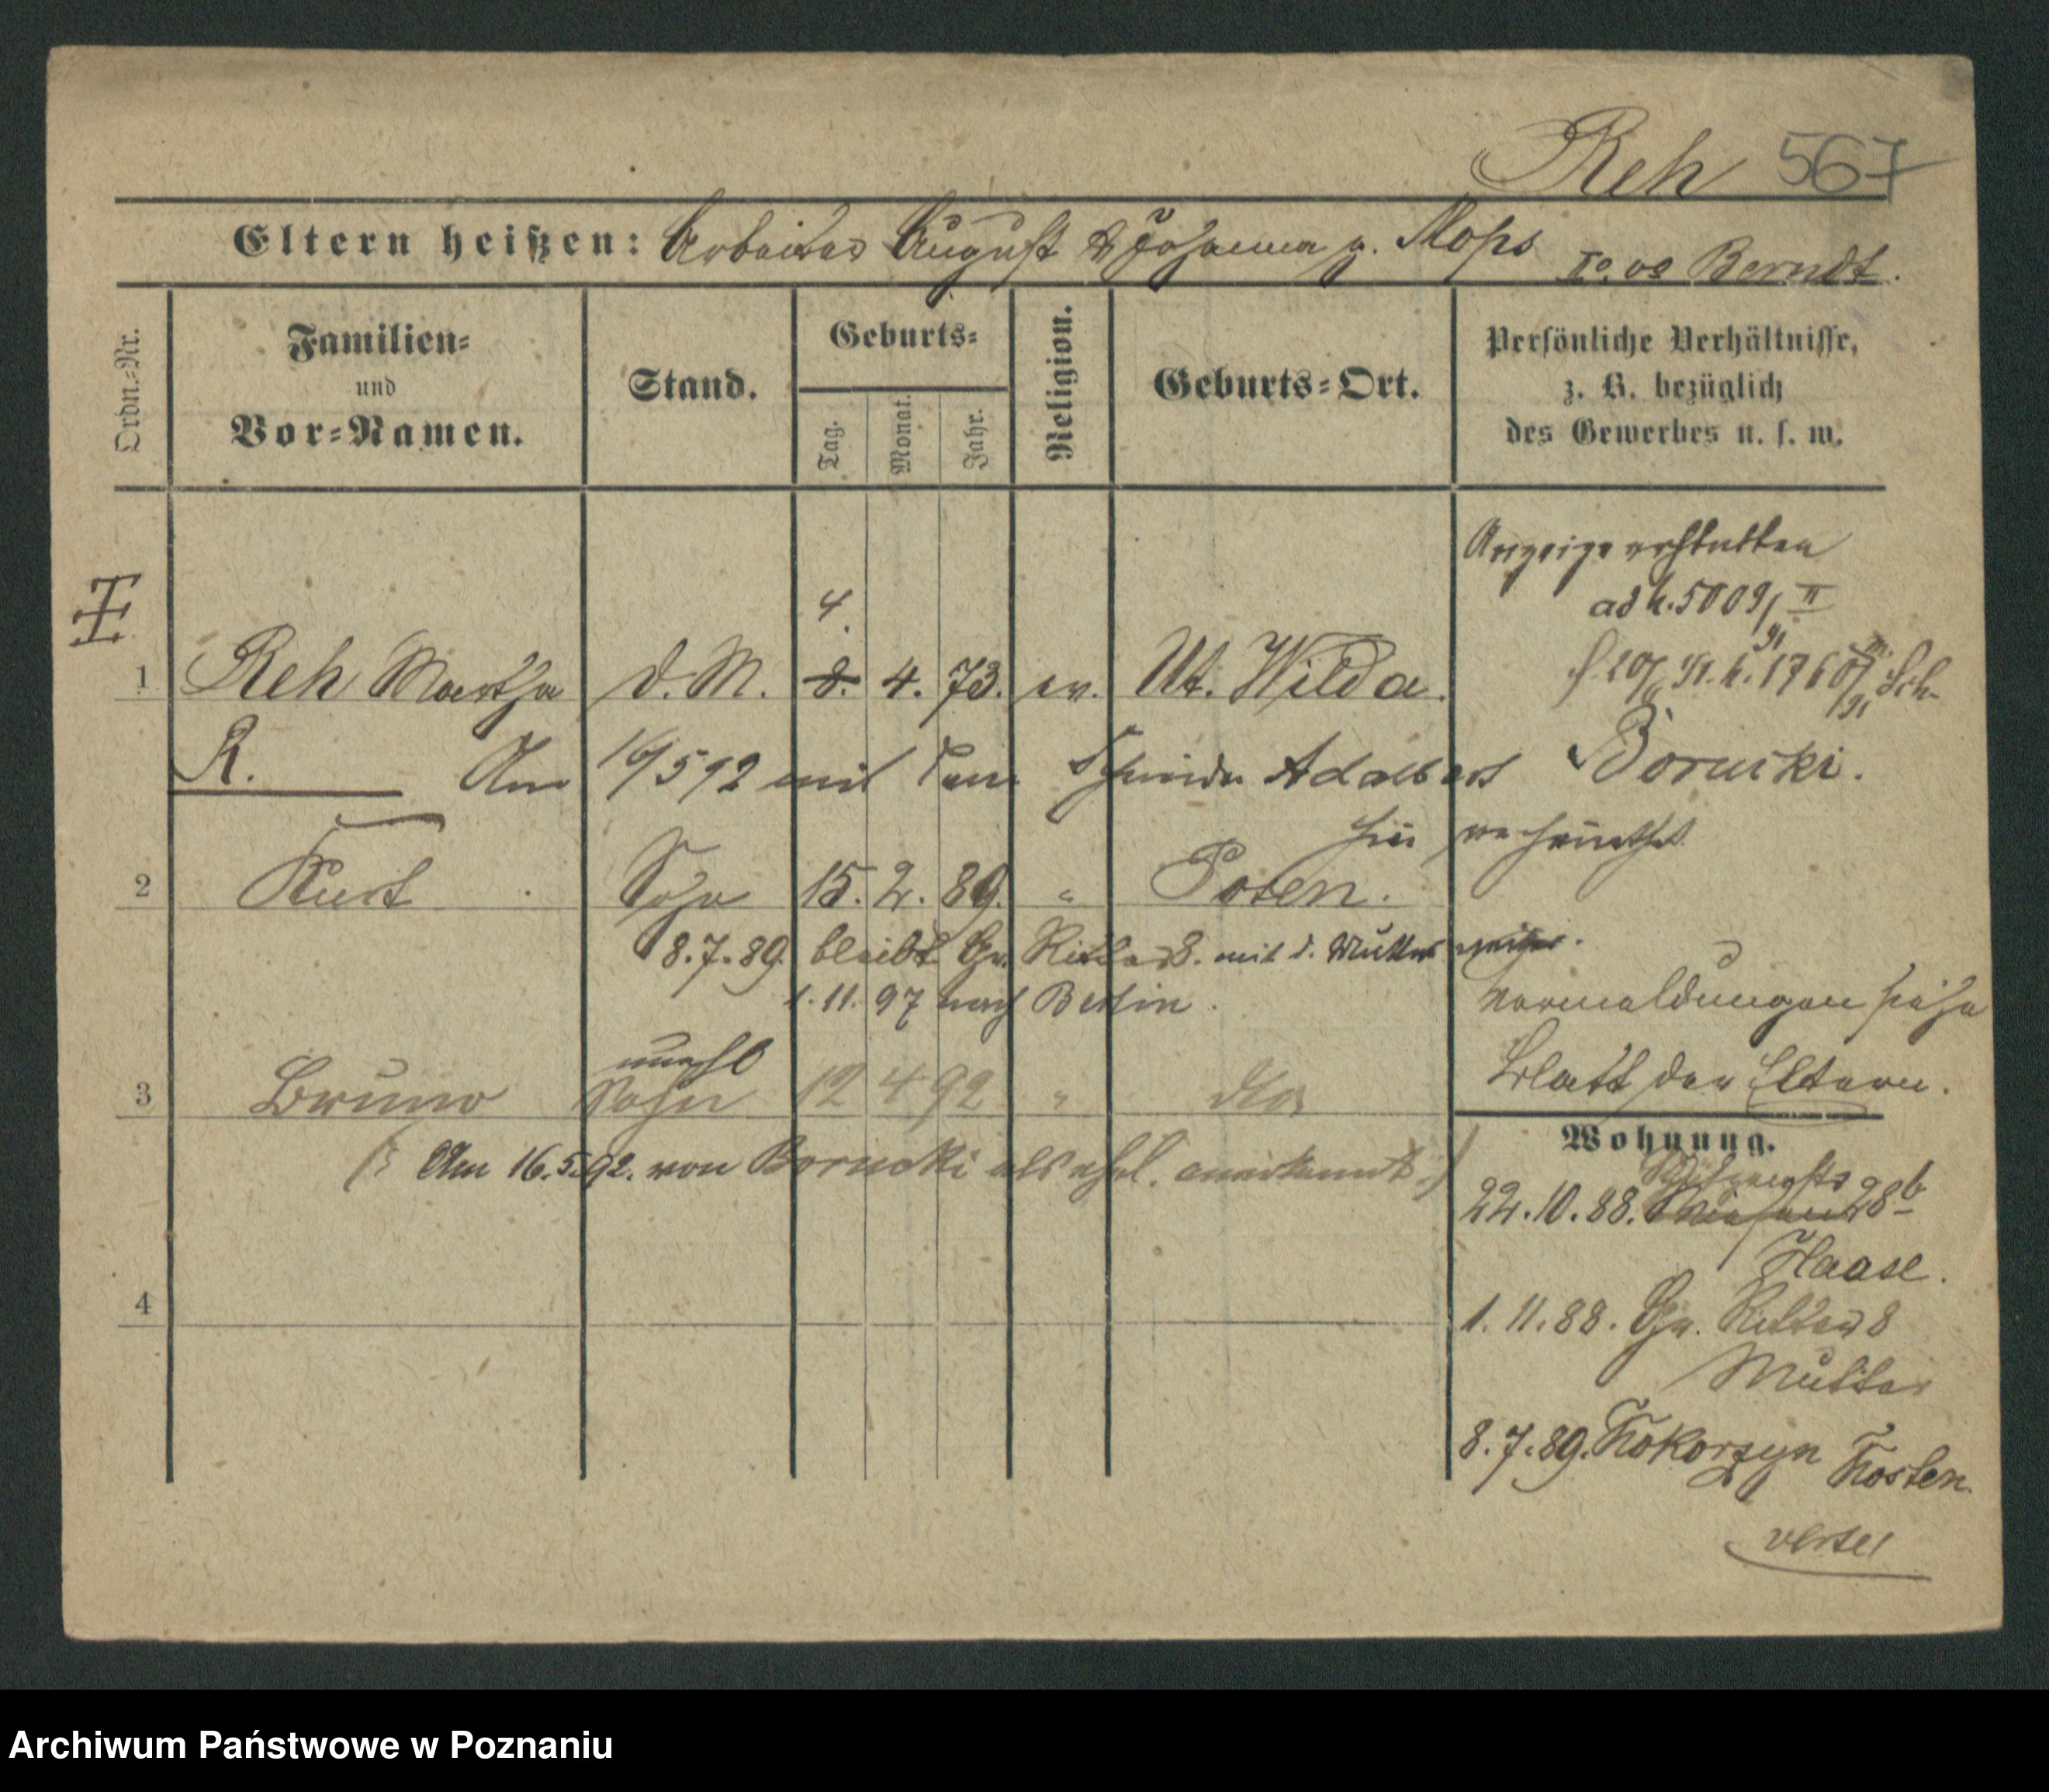 Reh 567
Eltern heißen: Arbeiter August & Johanna g. Mops Io. vo Berndt.
Ordn.-Nr. Familien- und Vor-Namen. Stand. Geburts- Tag. Monat. Jahr. Religion. Geburts-Ort. Persönliche Verhältnisse, z. B. bezüglich des Gewerbes u. s. w.
Anzeige erstatten
ad 5009/II 91
4.
1 Reh Martha d. M. 8. 4. 73. ev. Ut. Wilda.
R. Am 16/5 92 mit dem Schneider Adalbert Borucki.
hier verheirathet
2 Kurt Sohn 15. 2. 89. " Posen.
8.7.89. bleibt Gr. Ritter 8. mit d. Mutter
1.11.97 nach Berlin.
Vormeldungen siehe
Blatt der Eltern.
unehl
3 Bruno Sohn 12 4 92 " dto
(: Am 16.5.92. von Borucki als ehel. anerkannt :)
Wohnung.
22.10.88. 28b
Haase.
4
1.11.88. Gr. Ritter 8
Mutter
8.7.89. Kokorzyn Kosten.
verte!
Archiwum Państwowe w Poznaniu